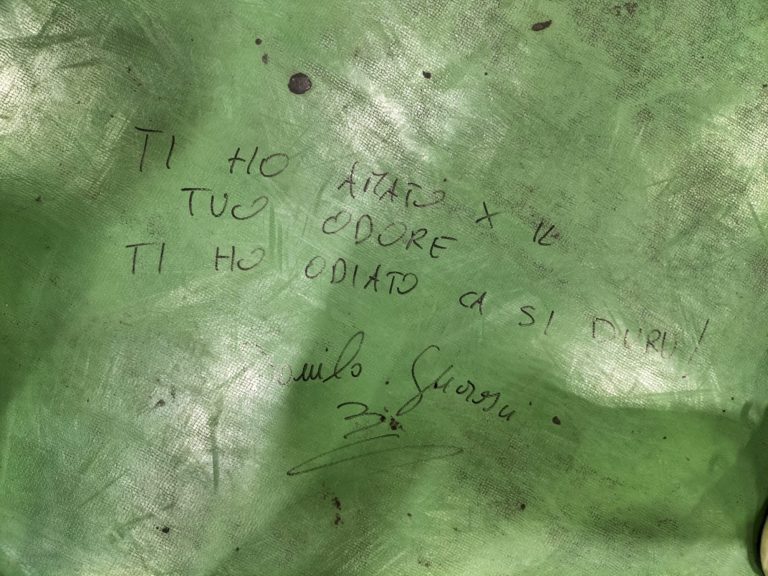 TI HO AMATO X IL
TUO ODORE
TI HO ODIATO CA SI DURU!